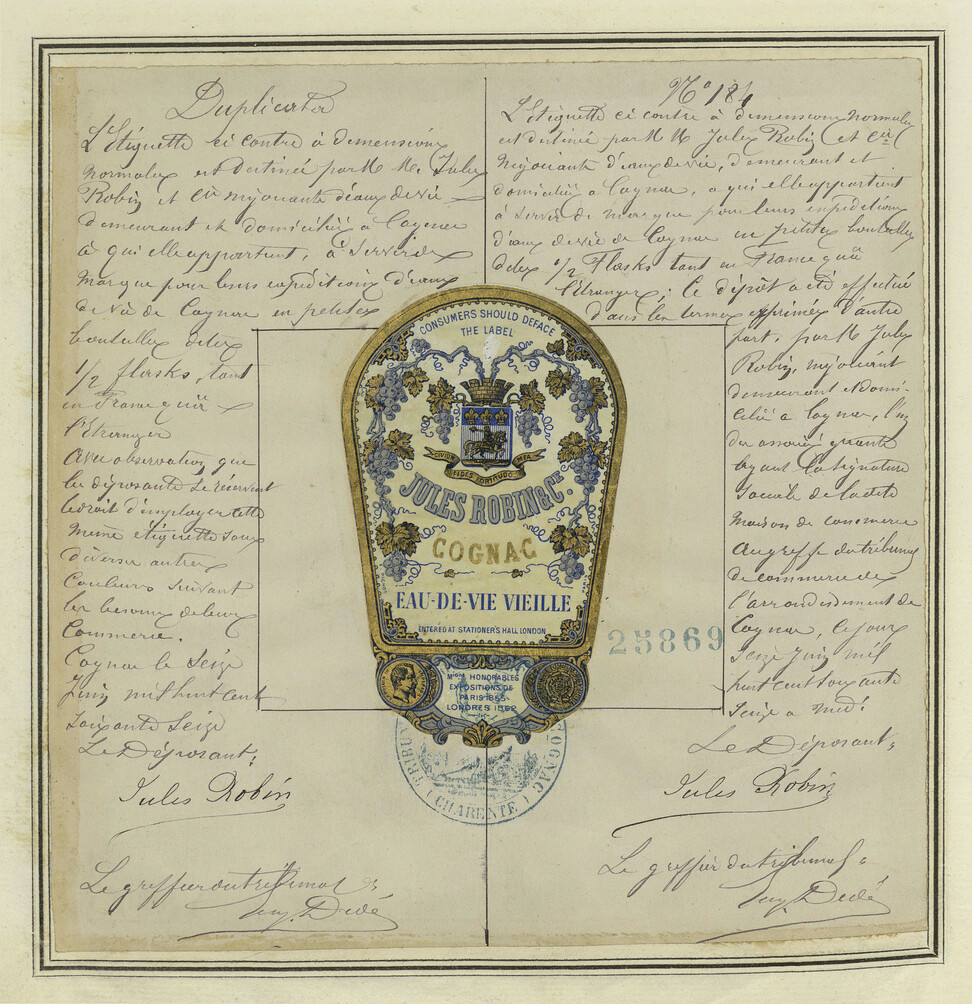 Duplicata
L'Étiquette ci contre à dimensions
normales est destinée par M. M. Jules
Robin et Cie négociants d'eaux de vie
demeurant et domiciliés à Cognac
à qui elle appartient, à servir de
marque pour leurs expéditions d'eaux
de vie de Cognac en petites
bouteilles dites
1/2 flasks, tant
en France qu'à
l'Etranger
Avec observation que
les déposants se réservent
le droit d'employer cette
même étiquette sous
diverses autres
Couleurs suivant
les besoins de leur
Commerce.
Cognac le Seize
Juin mil huit cent
soixante Seize
Le Déposant,
Jules Robin
Le greffier du tribunal,
Eug. Dedé
No 184
L'Étiquette ci contre à dimensions normales
est destinée par M M Jules Robin et Cie
négociants d'eaux de vie, demeurant et
domiciliés à Cognac, à qui elle appartient
à servir de marque pour leurs expéditions
d'eaux de vie de Cognac en petites bouteilles
dites 1/2 Flasks tant en France qu'à
l'Etranger; Ce dépôt a été effectué
dans les termes exprimés d'autre
part, par M Jules
Robin, négociant
demeurant et domi-
cilié à Cognac, l'un
des associés gérants
ayant la signature
sociale de la dite
maison de commerce
au greffe du tribunal
de commerce de
l'arrondissement de
Cognac, ce jour
seize Juin mil
huit cent soixante
seize à midi
Le Déposant,
Jules Robin
Le greffier du tribunal,
Eug. Dedé
CONSUMERS SHOULD DEFACE
THE LABEL
CIVIUM
FIDES FORTITUDO
MEA
JULES ROBIN & CIE.
COGNAC
EAU-DE-VIE VIEILLE
ENTERED AT STATIONER'S HALL LONDON
MONS HONORABLES
EXPOSITIONS DE
PARIS 1855
LONDRES 1862
25869
COGNAC
(CHARENTE)